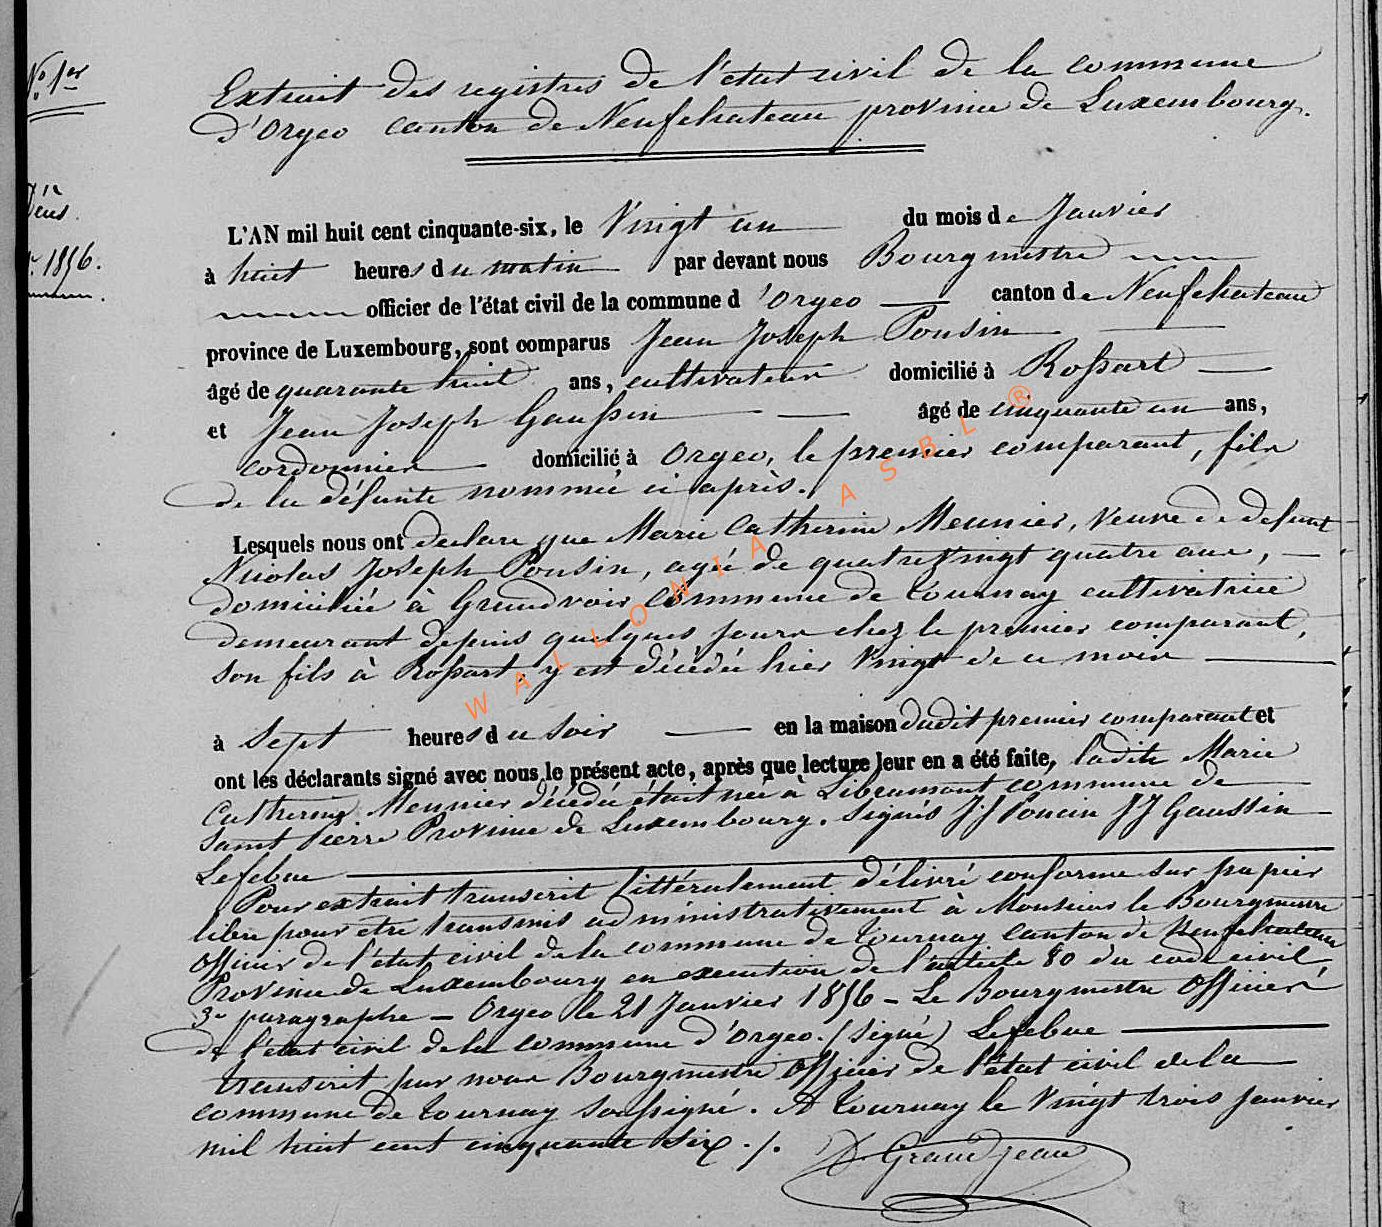 N.° 1er
Extrait des registres de l'état civil de la commune
d'Orgeo canton de Neufchateau province de Luxembourg.
Décès
1856.
L'AN mil huit cent cinquante-six, le Vingt un du mois de Janvier
à huit heures du matin par devant nous Bourgmestre
officier de l'état civil de la commune d'Orgeo canton de Neufchateau
province de Luxembourg, sont comparus Jean Joseph Ponsin
âgé de quarante huit ans, cultivateur domicilié à Rossart
et Jean Joseph Gaussin âgé de cinquante un ans,
cordonnier domicilié à Orgeo, le premier comparant, fils
de la défunte nommée ci après.
Lesquels nous ont declare que Marie Catherine Meunier, Veuve de defunt
Nicolas Joseph Ponsin, agée de quatre Vingt quatre ans,
domiciliée à Grandvoir Commune de Tournay cultivatrice
demeurant depuis quelques jours chez le premier comparant,
son fils à Rossart, y est décédée hier Vingt de ce mois
à Sept heures du soir en la maison dudit premier comparant et
ont les déclarants signé avec nous le présent acte, après que lecture leur en a été faite, ladite Marie
Catherine Meunier décédée était née à Libramont commune de
Saint Pierre Province de Luxembourg. Signés J J Poncin J J Gaussin
Lefebue
Pour extrait transcrit littéralement délivré conforme sur papier
libre pour etre transmis administrativement à Monsieur le Bourgmestre
Officier de l'état civil de la commune de Tournay canton de Neufchateau
Province de Luxembourg en execution de l'article 80 du code civil,
3e paragraphe - Orgeo le 21 Janvier 1856 - Le Bourgmestre Officier
de l'état civil de la commune d'Orgeo. (Signé) Lefebue
transcrit par nous Bourgmestre Officier de l'état civil de la
commune de Tournay soussigné. A Tournay le Vingt trois janvier
mil huit cent cinquante six ./.
Grandjean
WALLONIA ASBL ®